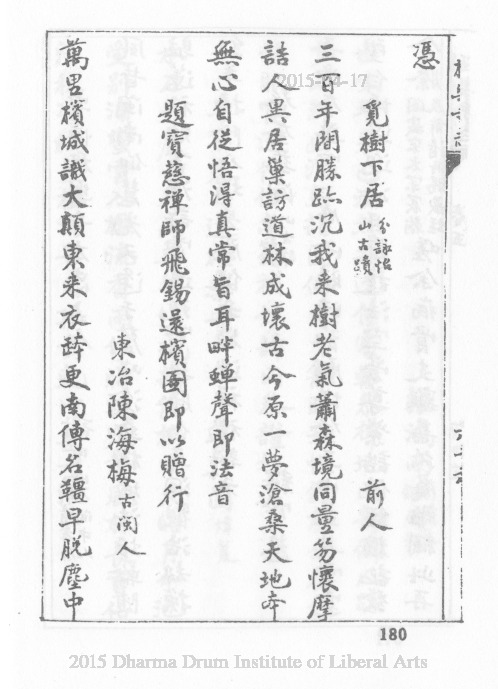 憑
覓樹下居 分詠怡山古蹟 前人
三百年間勝跡沉我来樹老氣蕭森境同曇芴懷摩
詰人異居巢訪道林成壞古今原一夢滄桑天地本
無心自從悟得真常旨耳畔蟬聲即法音
題寳慈禅師飛錫還檳園即以贈行
東冶陳海梅 古閩人
萬里檳城識大顛東来衣鉢更南傳名韁早脱塵中
2015-04-17
180
2015 Dharma Drum Institute of Liberal Arts